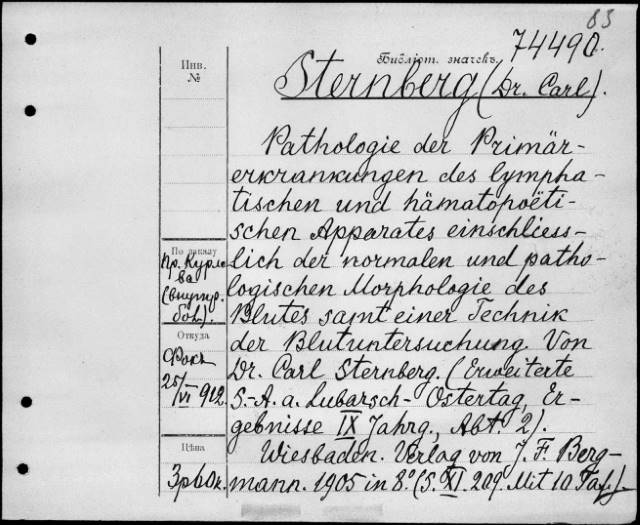 83
74490.
Библіот. значекъ.
Инв.
№
Sternberg (Dr. Carl).
Pathologie der Primär-
erkrankungen des lympha-
tischen und hämatopoëti-
schen Apparates einschliess-
lich der normalen und patho-
logischen Morphologie des
Blutes samt einer Technik
der Blutuntersuchung. Von
Dr. Carl Sternberg. (Erweiterte
S.-A. a. Lubarsch-Ostertag, Er-
gebnisse IX Jahrg., Abt. 2).
Wiesbaden. Verlag von J. F. Berg-
mann. 1905 in 8° (S. XI. 209. Mit 10 Taf.).
По заказу
пр. Курло-
ва
(внутр.
бол.).
Откуда
Фокъ
25/VI 912.
Цѣна
3р60к.